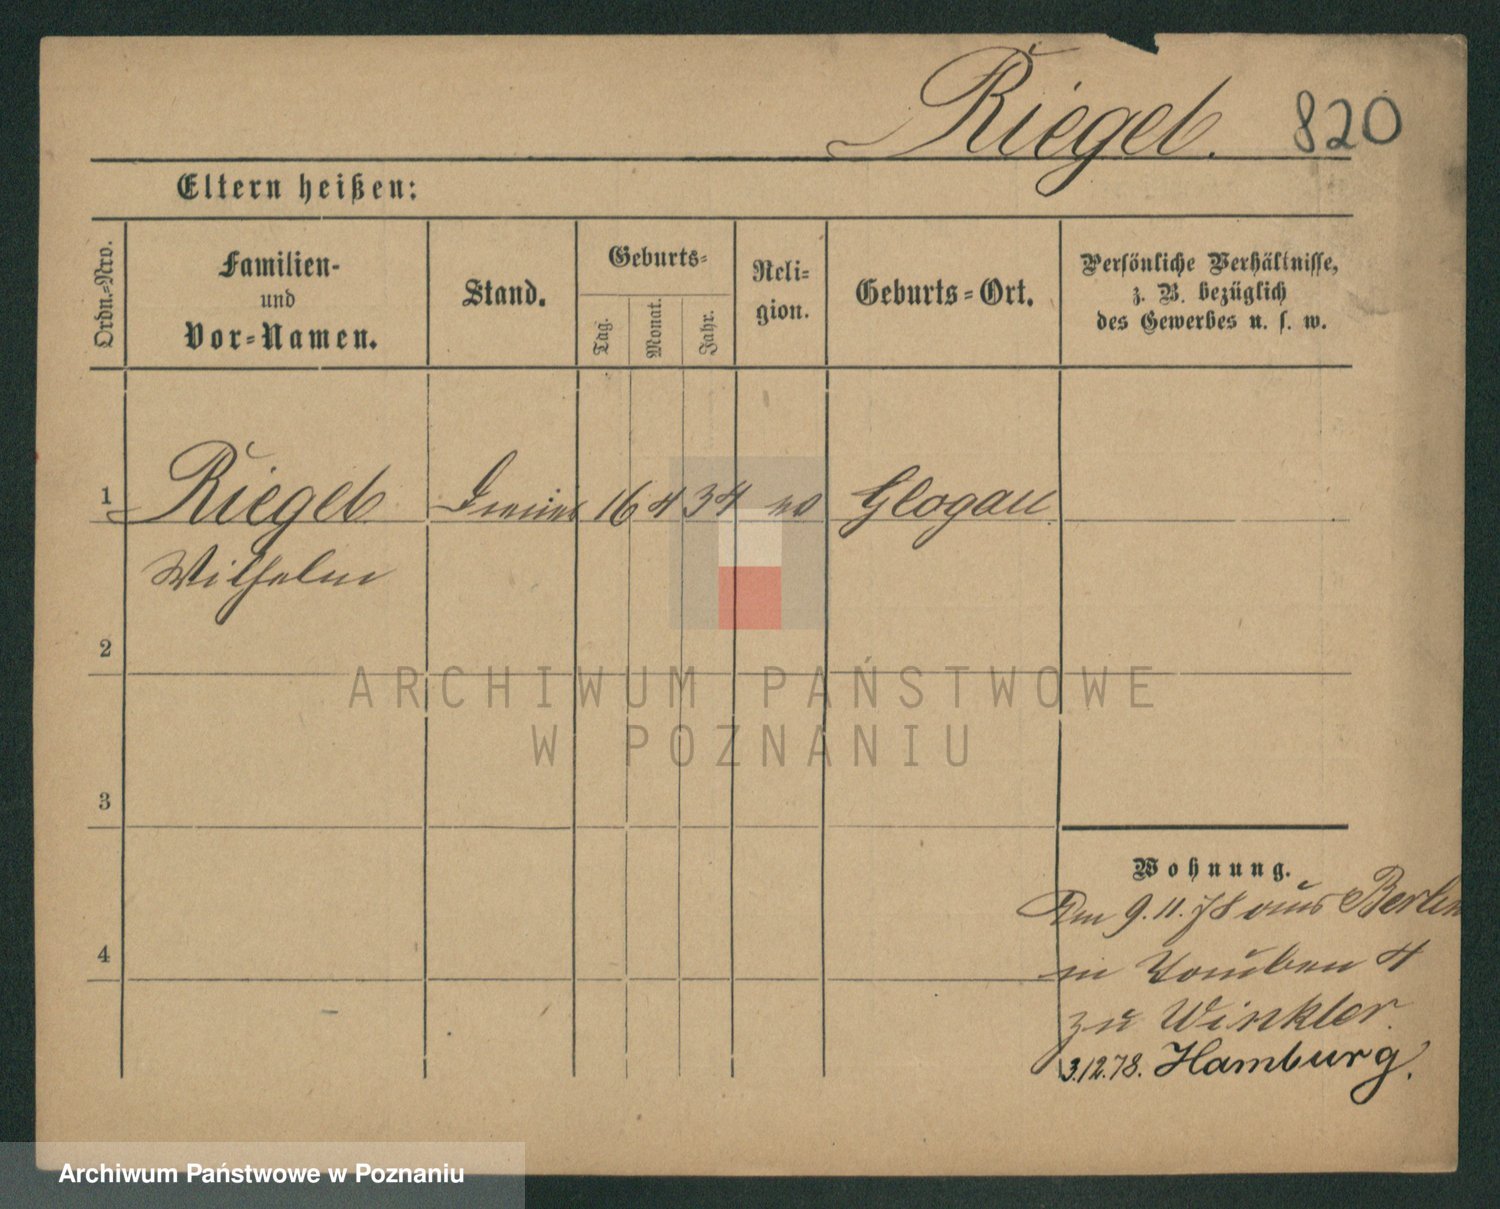 Riegel. 820
Eltern heißen:
Ordn.-Nro.
Familien-
und
Vor-Namen.
Stand.
Geburts-
Tag.
Monat.
Jahr.
Reli-
gion.
Geburts-Ort.
Persönliche Verhältnisse,
z. B. bezüglich
des Gewerbes u. s. w.
1 Riegel 16 4 34 Glogau
Wilhelm
2
3
4
Wohnung.
Am 9.11.78 aus Berlin
in 4
zu Winkler.
3.12.78. Hamburg.
ARCHIWUM PAŃSTWOWE
W POZNANIU
Archiwum Państwowe w Poznaniu